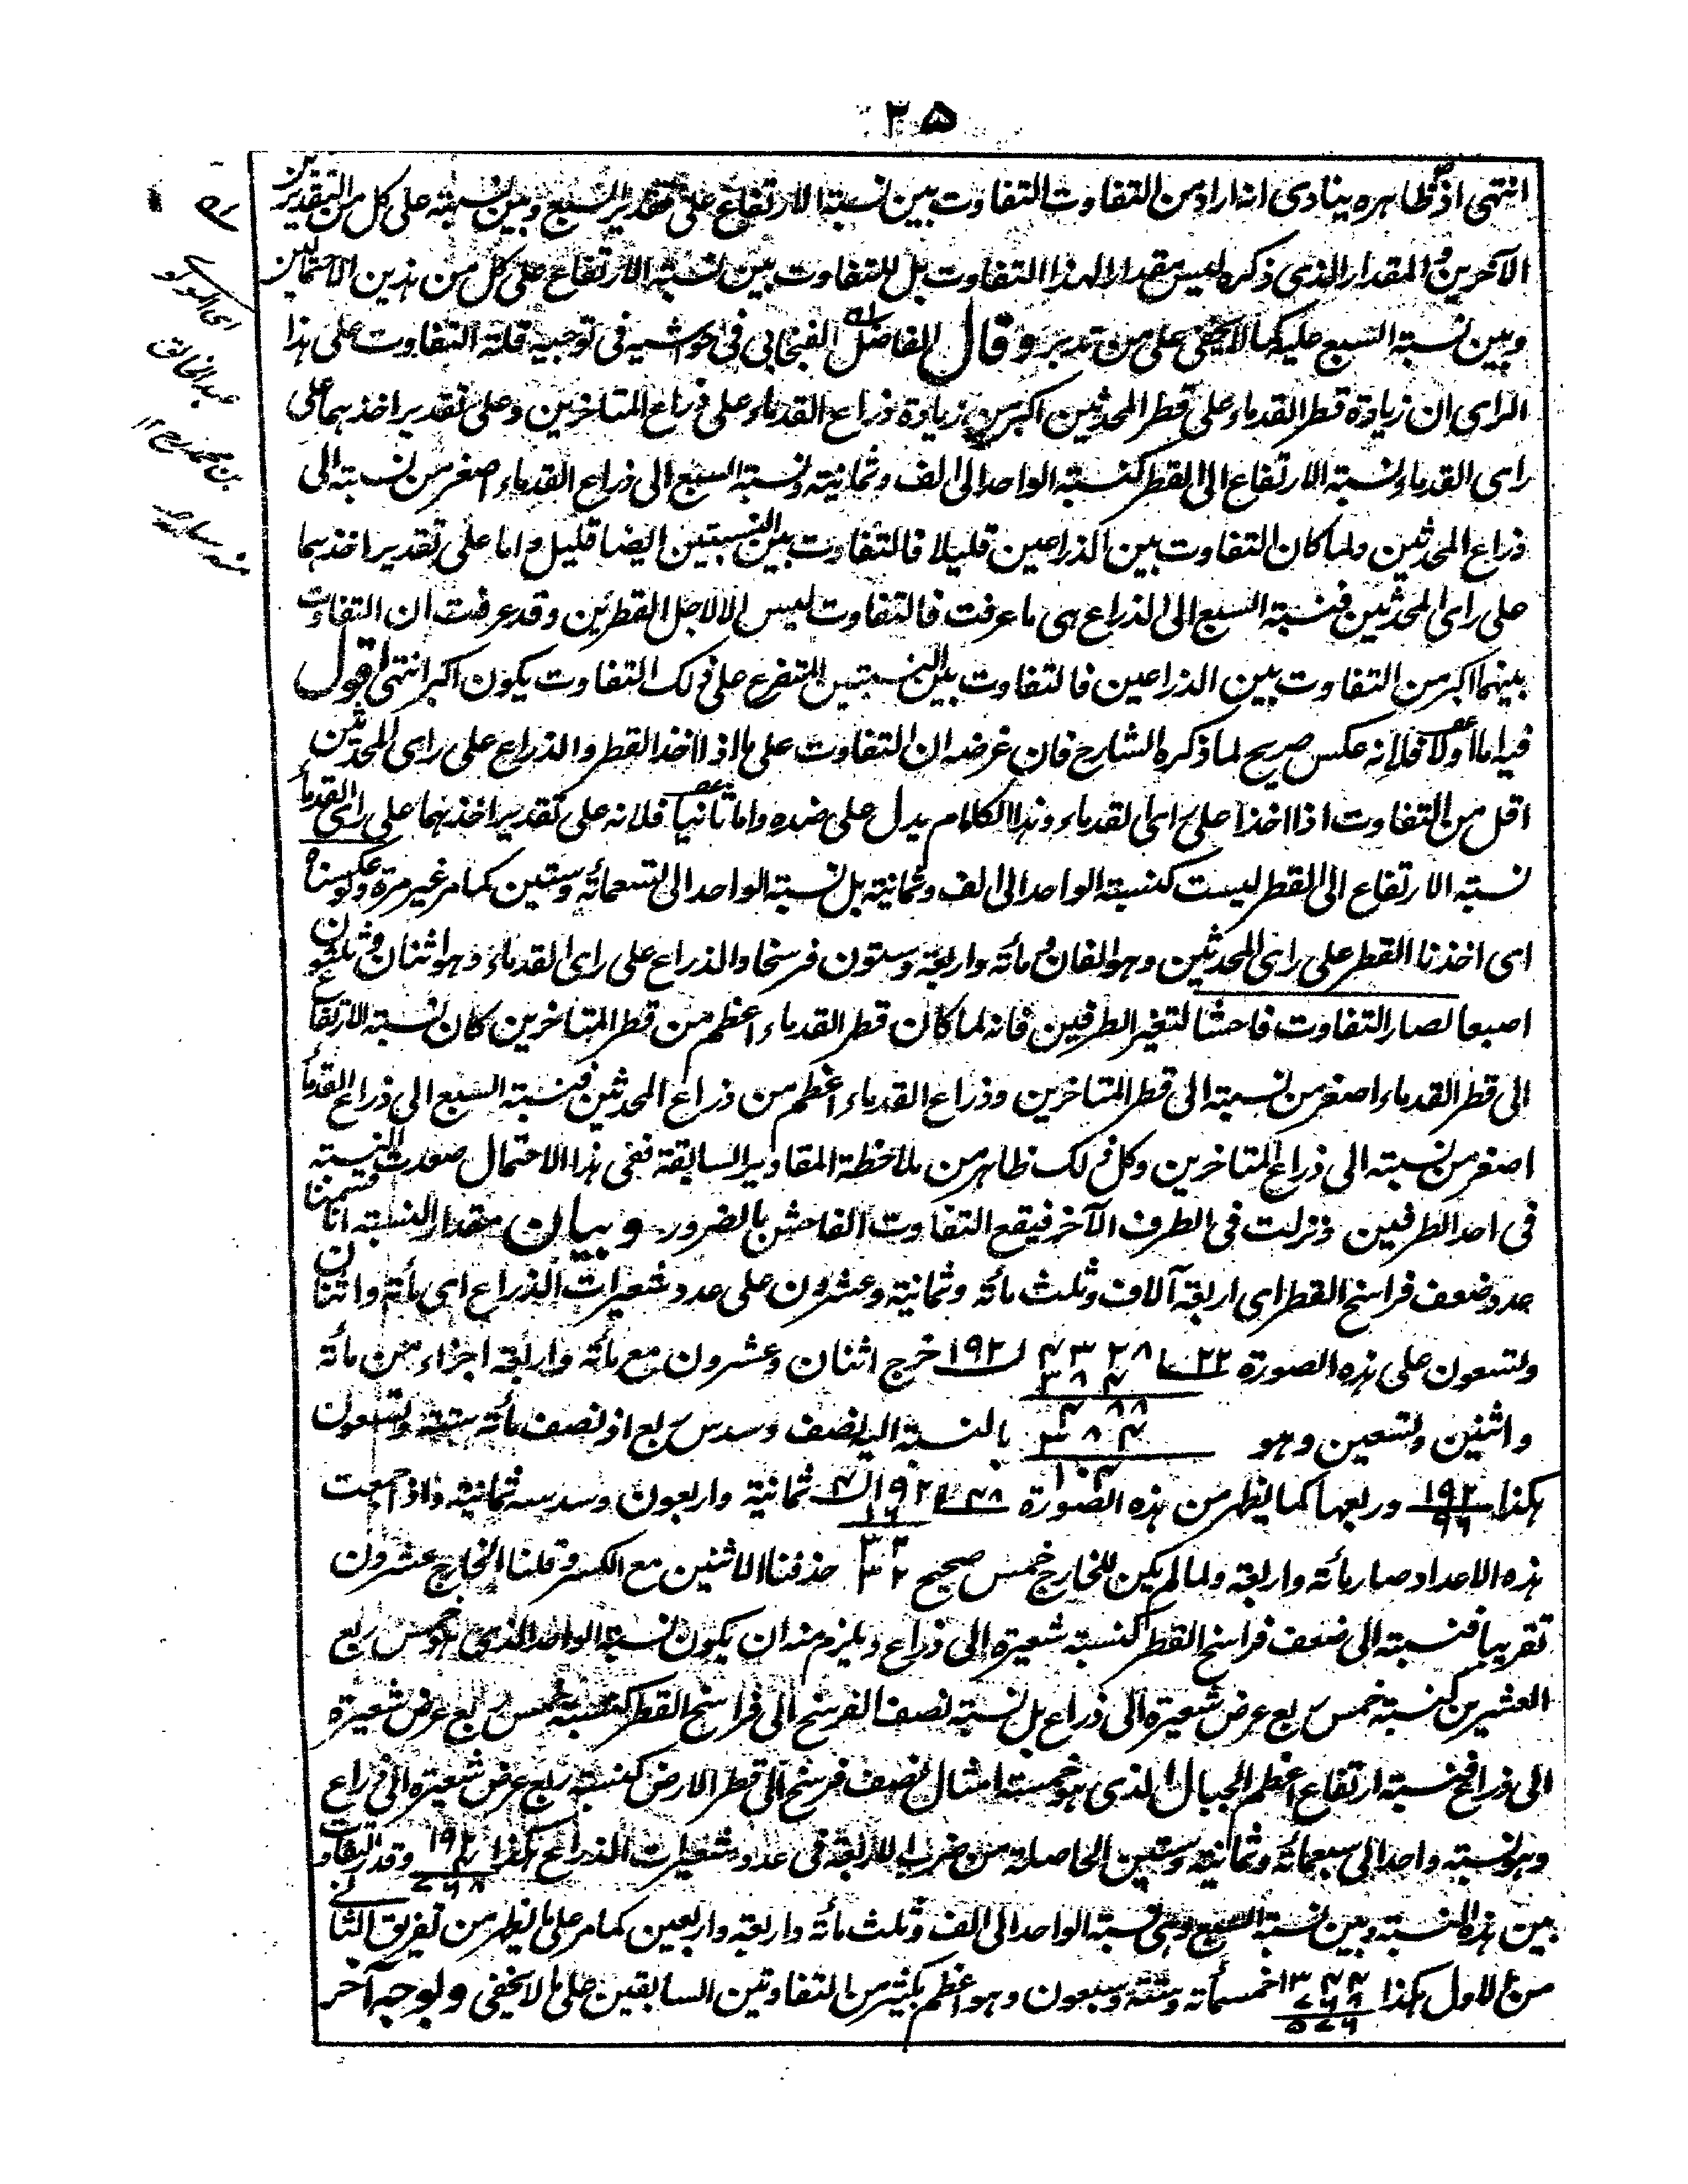 ٣٥
انتهى اذ ظاهره ينادى انه اراد من التفاوت التفاوت بين نسبة الارتفاع على تقدير السبع وبين نسبته على كل من التقديرين
الآخرين والمقدار الذى ذكره ليس مقدارا لهذا التفاوت بل للتفاوت بين نسبة الارتفاع على كل من هذين الاحتمالين
وبين نسبة السبع عليه كما لا يخفى على من تدبر وقال الفاضل الفنجابى فى حواشيه فى توجيه قلة التفاوت على هذا
الراى ان زيادة قطر القدماء على قطر المحدثين اكبر من زيادة ذراع القدماء على ذراع المتاخرين وعلى تقدير اخذهما على
راى القدماء ونسبة الارتفاع الى القطر كنسبة الواحد الى الف وثمانية ونسبة السبع الى ذراع القدماء اصغر من نسبته الى
ذراع المحدثين ولما كان التفاوت بين الذراعين قليلا فالتفاوت بين النسبتين ايضا قليل واما على تقدير اخذهما
على راى المحدثين فنسبة السبع الى الذراع هى ما عرفت فالتفاوت ليس الا لاجل القطرين وقد عرفت ان التفاوت
بينهما اكبر من التفاوت بين الذراعين فالتفاوت بين النسبتين المتفرع على ذلك التفاوت يكون اكبر انتهى اقول
فيه اما اولا فلانه عكس صريح لما ذكره الشارح فان غرضه ان التفاوت على ما اذا اخذ القطر والذراع على راى المحدثين
اقل من التفاوت اذا اخذا على راى القدماء وهذا الكلام يدل على ضده واما ثانيا فلانه على تقدير اخذهما على راى القدماء
نسبة الارتفاع الى القطر ليست كنسبة الواحد الى الف وثمانية بل نسبة الواحد الى تسعمائة وستين كما مر غير مرة ولو عكسناه
اى اخذنا القطر على راى المحدثين وهو الفان ومائة واربعة وستون فرسخا والذراع على راى القدماء وهو اثنان وثلثون
اصبعا لصار التفاوت فاحشا لتغير الطرفين فانه لما كان قطر القدماء اعظم من قطر المتاخرين كان نسبة الارتفاع
الى قطر القدماء اصغر من نسبته الى قطر المتاخرين وذراع القدماء اعظم من ذراع المحدثين فنسبة السبع الى ذراع القدماء
اصغر من نسبته الى ذراع المتاخرين وكل ذلك ظاهر من ملاحظة المقادير السابقة ففى هذا الاحتمال صعدت النسبة
فى احد الطرفين ونزلت فى الطرف الآخر فيقع التفاوت الفاحش بالضرور وبيان مقدار النسبة انا قسمنا
عدد ضعف فراسخ القطر اى اربعة آلاف وثلث مائة وثمانية وعشرون على عدد شعيرات الذراع اى مائة واثنان
وتسعون على هذه الصورة ٢٢ ٤٣٢٨ ١٩٢ خرج اثنان وعشرون مع مائة واربعة اجزاء من مائة
٣٨٤
واثنين وتسعين وهو ٤٨٨ بالنسبة اليه نصف وسدس ربع اذ نصف مائة ستة وتسعون
٣٨٤
١٠٤
هكذا ١٩٢ وربعها كما يظهر من هذه الصورة ٤٨ ١٩٢ ٤ ثمانية واربعون وسدسه ثمانية واذا جمعت
٩٦ ١٦
هذه الاعداد صار مائة واربعة ولما لم يكن للخارج خمس صحيح ٣٢ حذفنا الاثنين مع الكسر وقلنا الخارج عشرون
٣٢
تقريبا فنسبته الى ضعف فراسخ القطر كنسبة شعيرة الى ذراع ويلزم منه ان يكون نسبة الواحد الذى هو خمس ربع
العشرين كنسبة خمس ربع عرض شعيرة الى ذراع بل نسبة نصف الفرسخ الى فراسخ القطر كنسبة خمس ربع عرض شعيرة
الى ذراع فنسبة ارتفاع اعظم الجبال الذى هو خمسة امثال نصف فرسخ الى قطر الارض كنسبة ربع عرض شعيرة الى ذراع
وهو نسبة واحد الى سبعمائة وثمانية وستين الحاصلة من ضرب الاربعة فى عدد شعيرات الذراع هكذا ١٩٢ وقدر التفاوت
٤
٧٦٨
بين هذه النسبة وبين نسبة السبع وهى نسبة الواحد الى الف وثلث مائة واربعة واربعين كما مر على ما يظهر من تفريق الثانى
من الاول هكذا ١٣٤٤ خمسمائة وستة وسبعون وهو اعظم بكثير من التفاوتين السابقين على ما لا يخفى ولوجه آخر
٧٦٨
٥٧٦
اى المولوى
عبد الخالق
بن محمد